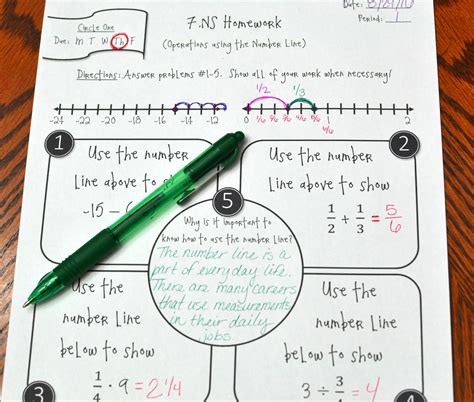 Circle One
Due: M T W Th F
7.NS Homework
(Operations using the Number Line)
Date: 8/29/16
Period: 1
Directions: Answer problems #1-5. Show all of your work when necessary!
1/2 1/3
-24 -22 -20 -18 -16 -14 -12
0 1/6 2/6 3/6 4/6 5/6 1 2
6/6
1
Use the number
Line above to
-15 -
2
Use the number
Line above to show
1/2 + 1/3 = 5/6
5
Why is it important to
know how to use the number Line?
The number line is a
part of everyday life.
There are many careers
that use measurements
in their daily
jobs.
3
Use the
number Line
below to show
1/4 · 9 = 2 1/4
4
Use the
number Line
below to show
3 ÷ 3/4 = 4